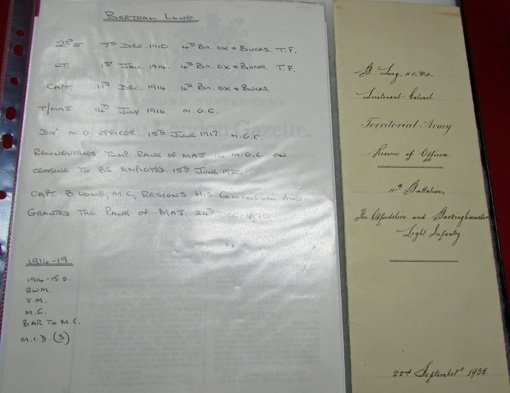 BERTRAM LONG
2ND LT 7TH DEC. 1910. 4TH BN. OX & BUCKS. T.F.
LT. 1ST JAN. 1914. 4TH BN. OX & BUCKS. T.F.
CAPT. 11TH DEC. 1914. 4TH BN. OX & BUCKS.
T/MAJ. 14TH JULY 1916. M.G.C.
DIV. M.G. OFFICER 15TH JUNE 1917 M.G.C.
Gazette,
RELINQUISHES TEMP RANK OF MAJ IN M.G.C. ON
CEASING TO BE EMPLOYED 15TH JUNE 1920
CAPT B. LONG, M.C., RESIGNS HIS COMMISSION AND
GRANTED THE RANK OF MAJ 24TH DEC 1920
1914-19
1914-15 S
BWM.
V.M.
M.C.
BAR TO M.C.
M.I.D. (3)
B. Long, M.C.,
Lieutenant-Colonel
Territorial Army
Reserve of Officers
4th Battalion,
The Oxfordshire and Buckinghamshire
Light Infantry
22nd September 1938